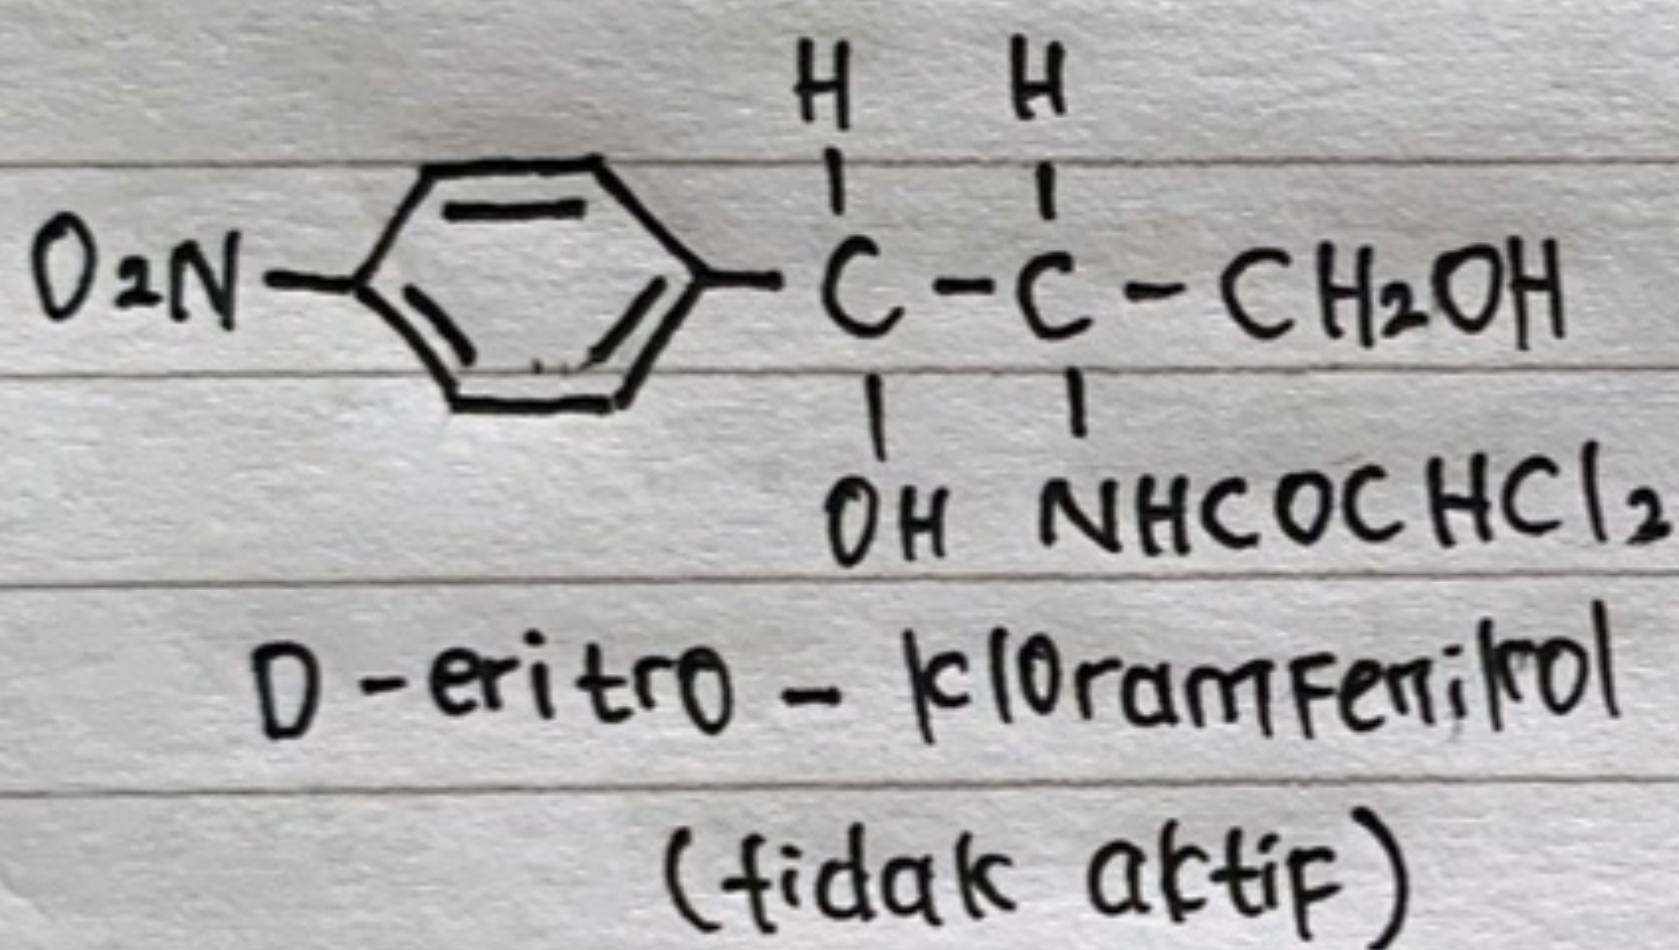 H H
O2N C - C - CH2OH
OH NHCOCHCl2
D - eritro - kloramfenikol
(tidak aktif)